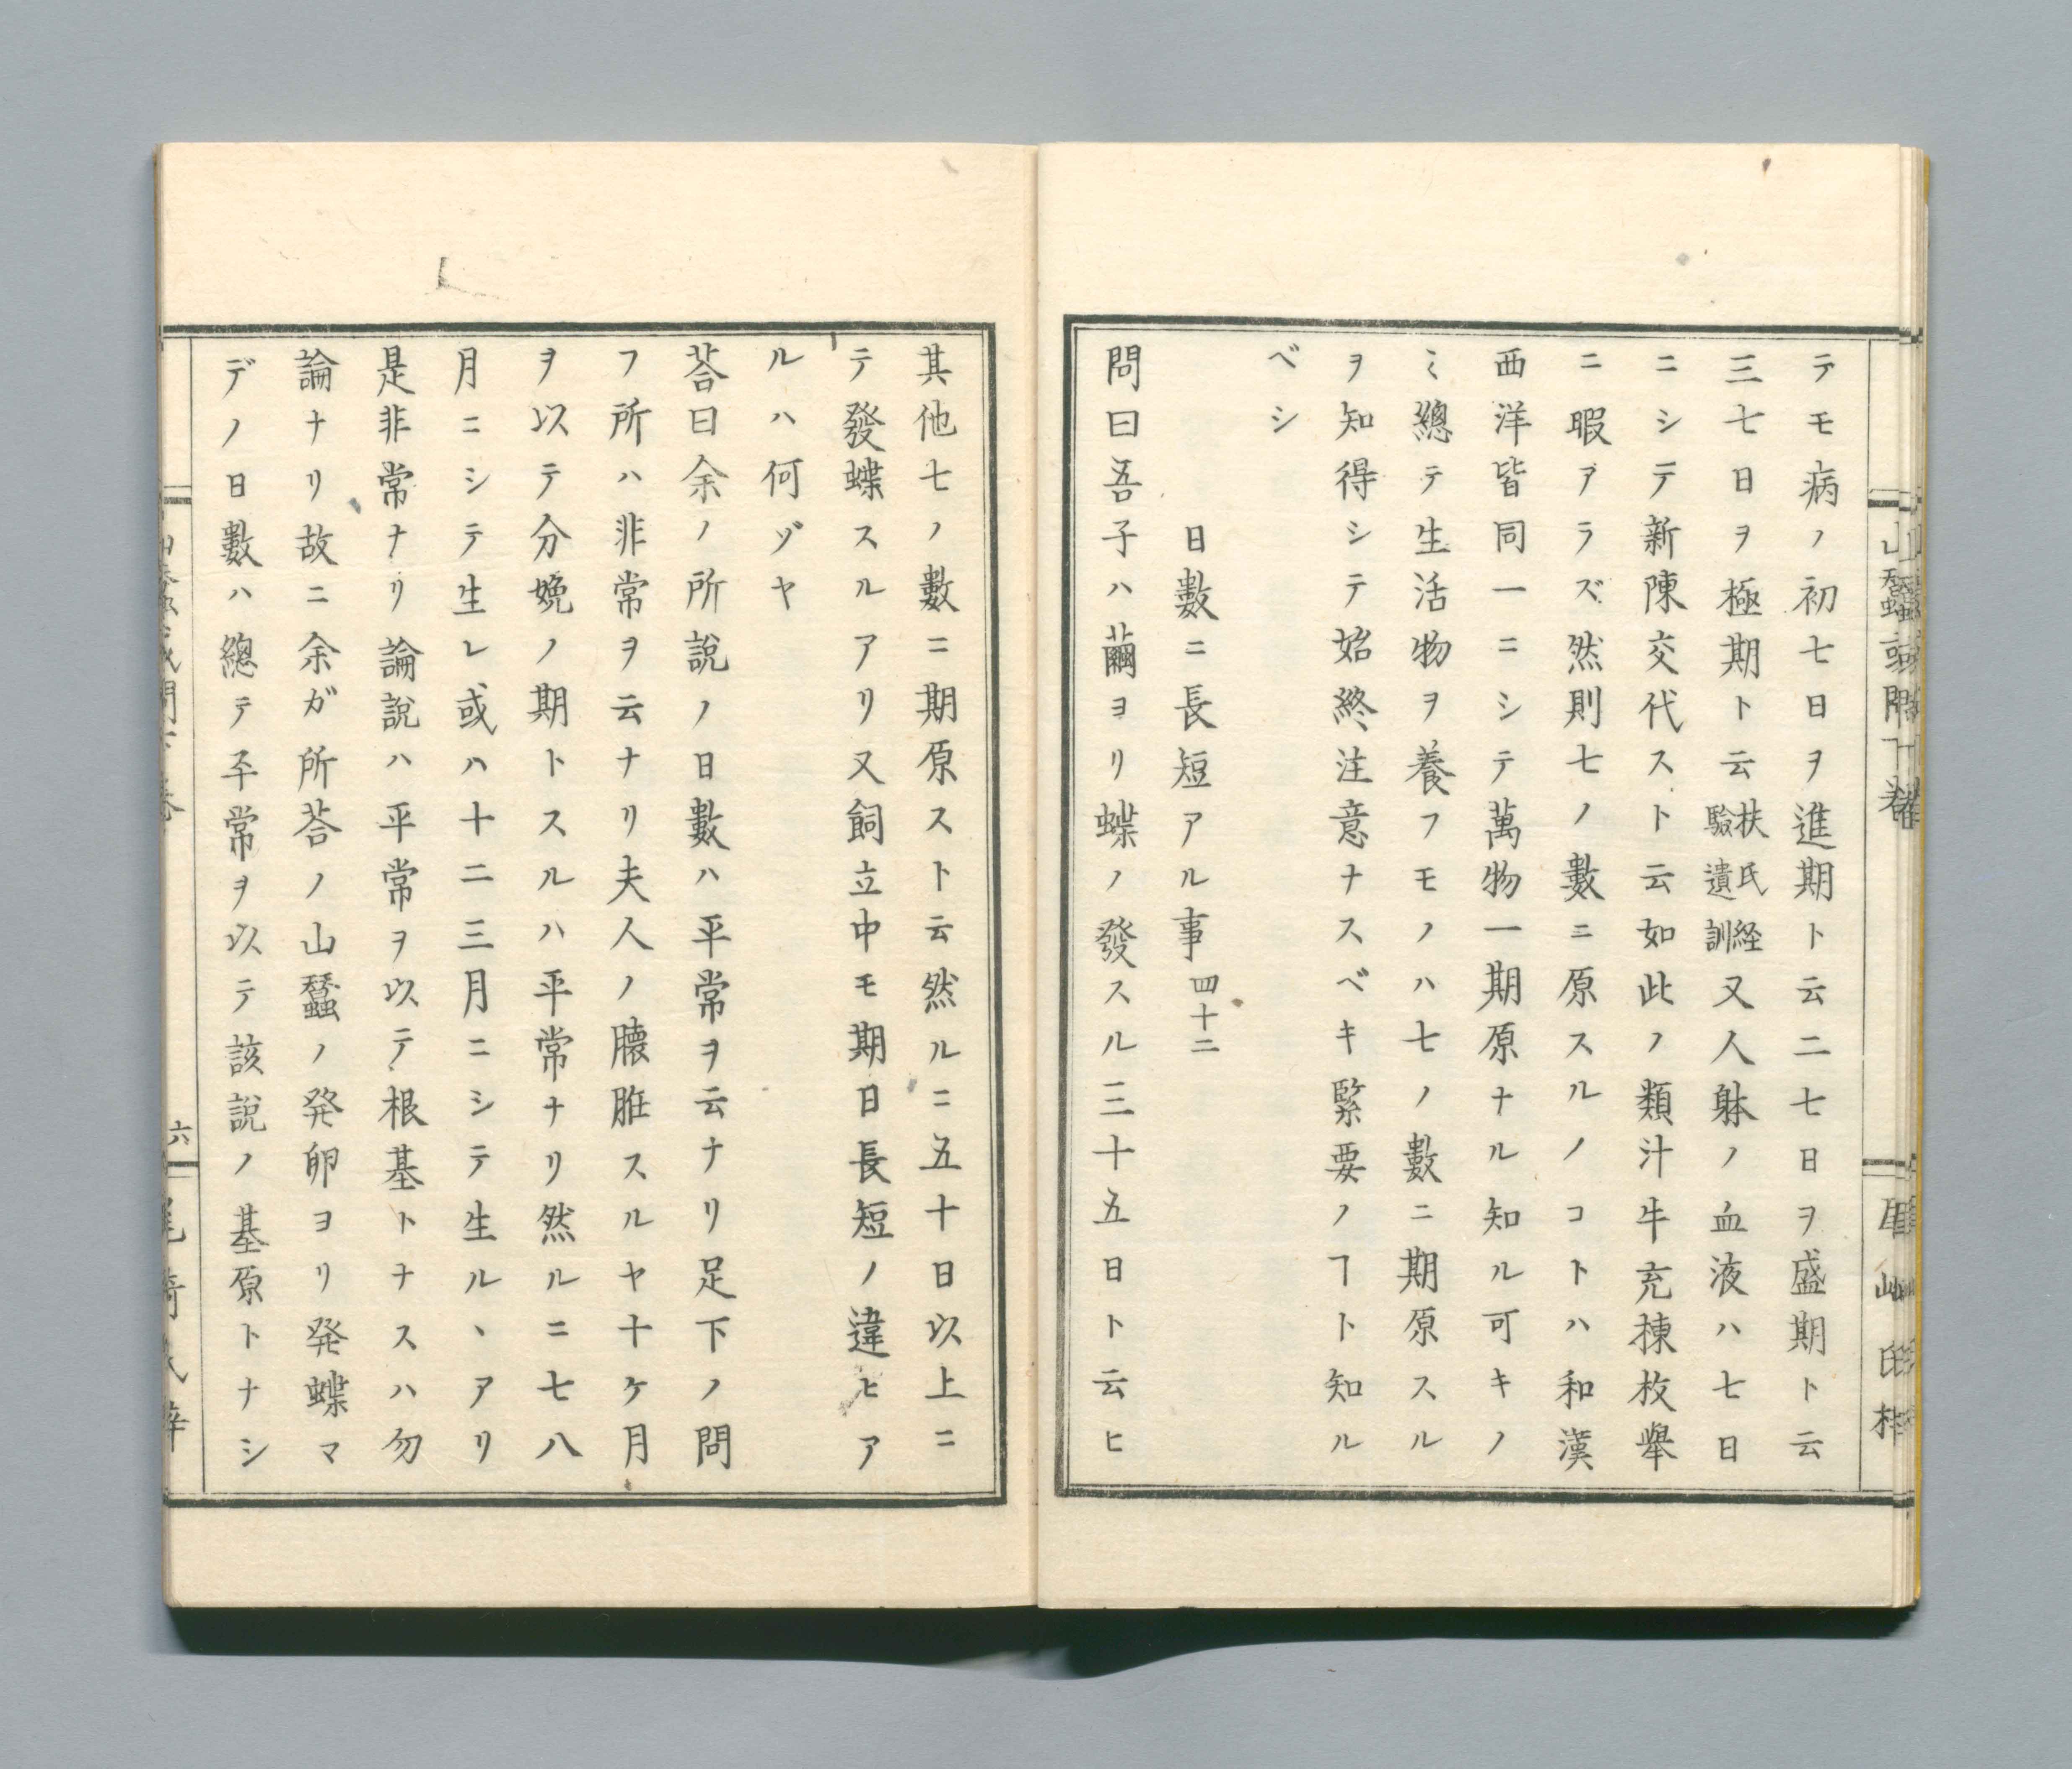 テモ病ノ初七日ヲ進期ト云二七日ヲ盛期ト云
三七日ヲ極期ト云扶氏経驗遺訓又人躰ノ血液ハ七日
ニシテ新陳交代スト云如此ノ類汁牛充棟枚舉
ニ暇アラズ然則七ノ數ニ原スルノコトハ和漢
西洋皆同一ニシテ萬物一期原ナル知ル可キノ
ミ總テ生活物ヲ養フモノハ七ノ數ニ期原スル
ヲ知得シテ始終注意ナスベキ緊要ノヿト知ル
ベシ
日數ニ長短アル事 四十二
問曰吾子ハ繭ヨリ蝶ノ發スル三十五日ト云ヒ
其他七ノ數ニ期原スト云然ルニ五十日以上ニ
テ發蝶スルアリ又飼立中モ期日長短ノ違ヒア
ルハ何ゾヤ
荅曰余ノ所說ノ日數ハ平常ヲ云ナリ足下ノ問
フ所ハ非常ヲ云ナリ夫人ノ膿胜スルヤ十ケ月
ヲ以テ分娩ノ期トスルハ平常ナリ然ルニ七八
月ニシテ生レ或ハ十二三月ニシテ生ル、アリ
是非常ナリ論說ハ平常ヲ以テ根基トナスハ勿
論ナリ故ニ余ガ所荅ノ山蠶ノ発卵ヨリ発蝶マ
デノ日數ハ總テ平常ヲ以テ該說ノ基原トナシ
六